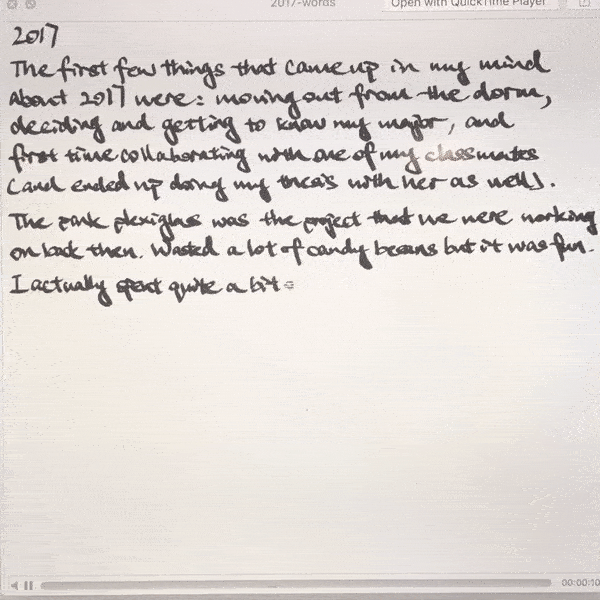 2017-words
Open with QuickTime Player
2017
The first few things that came up in my mind
About 2017 were: moving out from the dorm,
deciding and getting to know my major, and
first time collaborating with one of my classmates
(and ended up doing my thesis with her as well).
The pink plexiglass was the project that we were working
on back then. Wasted a lot of candy beans but it was fun.
I actually spent quite a bit
00:00:10